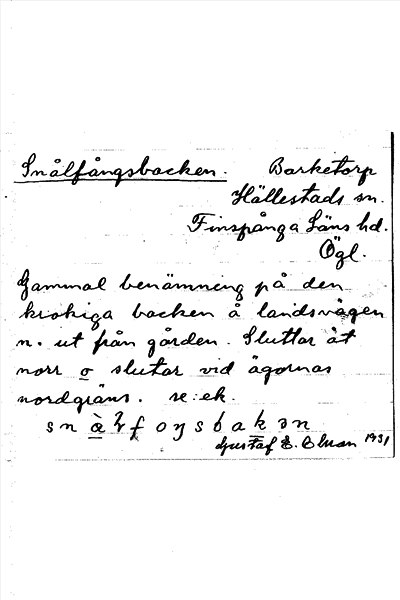 Snålfångsbacken. Barketorp
Hällestads sn.
Finspånga Läns hd.
Ögl.
Gammal benämning på den
krokiga backen å landsvägen
n. ut från gården. Sluttar åt
norr o slutar vid ägornas
nordgräns. se: ek.
Gustaf E. Olsson 1931